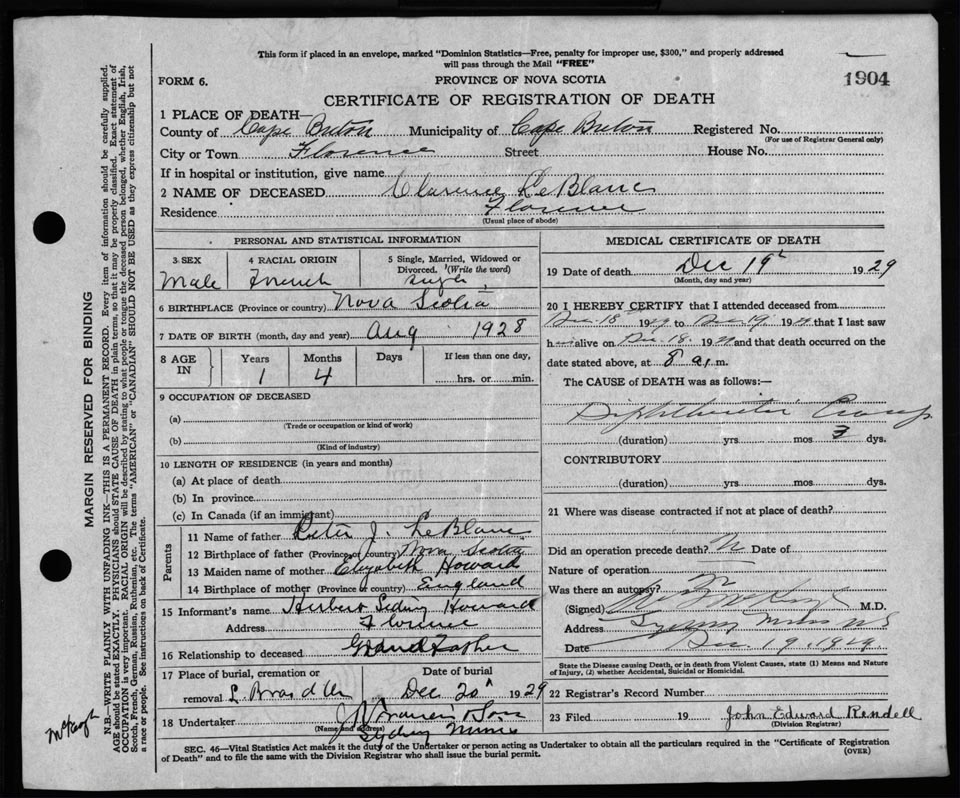 This form if placed in an envelope, marked "Dominion Statistics—Free, penalty for improper use, $300," and properly addressed
will pass through the Mail "FREE"
FORM 6. PROVINCE OF NOVA SCOTIA 1904
CERTIFICATE OF REGISTRATION OF DEATH
1 PLACE OF DEATH—
County of Cape Breton Municipality of Cape Breton Registered No.
(For use of Registrar General only)
City or Town Florence Street House No.
If in hospital or institution, give name
2 NAME OF DECEASED Clarence LeBlanc
Residence Florence
(Usual place of abode)
PERSONAL AND STATISTICAL INFORMATION
3 SEX 4 RACIAL ORIGIN 5 Single, Married, Widowed or
Divorced. (Write the word)
Male French Single
6 BIRTHPLACE (Province or country) Nova Scotia
7 DATE OF BIRTH (month, day and year) Aug 1928
8 AGE IN Years Months Days If less than one day,
1 4 hrs. or min.
9 OCCUPATION OF DECEASED
(a)
(Trade or occupation or kind of work)
(b)
(Kind of industry)
10 LENGTH OF RESIDENCE (in years and months)
(a) At place of death
(b) In province
(c) In Canada (if an immigrant)
Parents
11 Name of father Peter J. LeBlanc
12 Birthplace of father (Province or country) Nova Scotia
13 Maiden name of mother Elizabeth Howard
14 Birthplace of mother (Province or country) England
15 Informant's name Herbert Howard
Address Florence
16 Relationship to deceased Grand Father
17 Place of burial, cremation or Date of burial
removal Dec 20 1929
18 Undertaker & Son
(Name and address) Sydney Mines
MEDICAL CERTIFICATE OF DEATH
19 Date of death Dec 19 1929
(Month, day and year)
20 I HEREBY CERTIFY that I attended deceased from
Dec. 18 1929 to Dec. 19 1929 that I last saw
h alive on Dec. 18. 1929 and that death occurred on the
date stated above, at 8 a.m.
The CAUSE of DEATH was as follows:—
Croup
(duration) yrs mos 3 dys.
CONTRIBUTORY
(duration) yrs. mos dys.
21 Where was disease contracted if not at place of death?
Did an operation precede death? N Date of
Nature of operation
Was there an autopsy? N
(Signed) M.D.
Address Sydney Mines NS
Date Dec. 19. 1929
State the Disease causing Death, or in death from Violent Causes, state (1) Means and Nature
of Injury, (2) whether Accidental, Suicidal or Homicidal.
22 Registrar's Record Number
23 Filed 19 John Edward Rendell
(Division Registrar)
SEC. 46—Vital Statistics Act makes it the duty of the Undertaker or person acting as Undertaker to obtain all the particulars required in the "Certificate of Registration
of Death" and to file the same with the Division Registrar who shall issue the burial permit. (OVER)
MARGIN RESERVED FOR BINDING
N.B.—WRITE PLAINLY WITH UNFADING INK—THIS IS A PERMANENT RECORD. Every item of information should be carefully supplied.
AGE should be stated EXACTLY. PHYSICIANS should STATE CAUSE OF DEATH in plain terms, so that it may be properly classified. Exact statement of
OCCUPATION is very important. RACIAL ORIGIN will be described by stating to what people or tongue the deceased person belonged, whether English, Irish,
Scotch, French, German, Russian, Ruthenian, etc. The terms "AMERICAN" or "CANADIAN" SHOULD NOT BE USED as they express citizenship but not
a race or people. See instructions on back of Certificate.